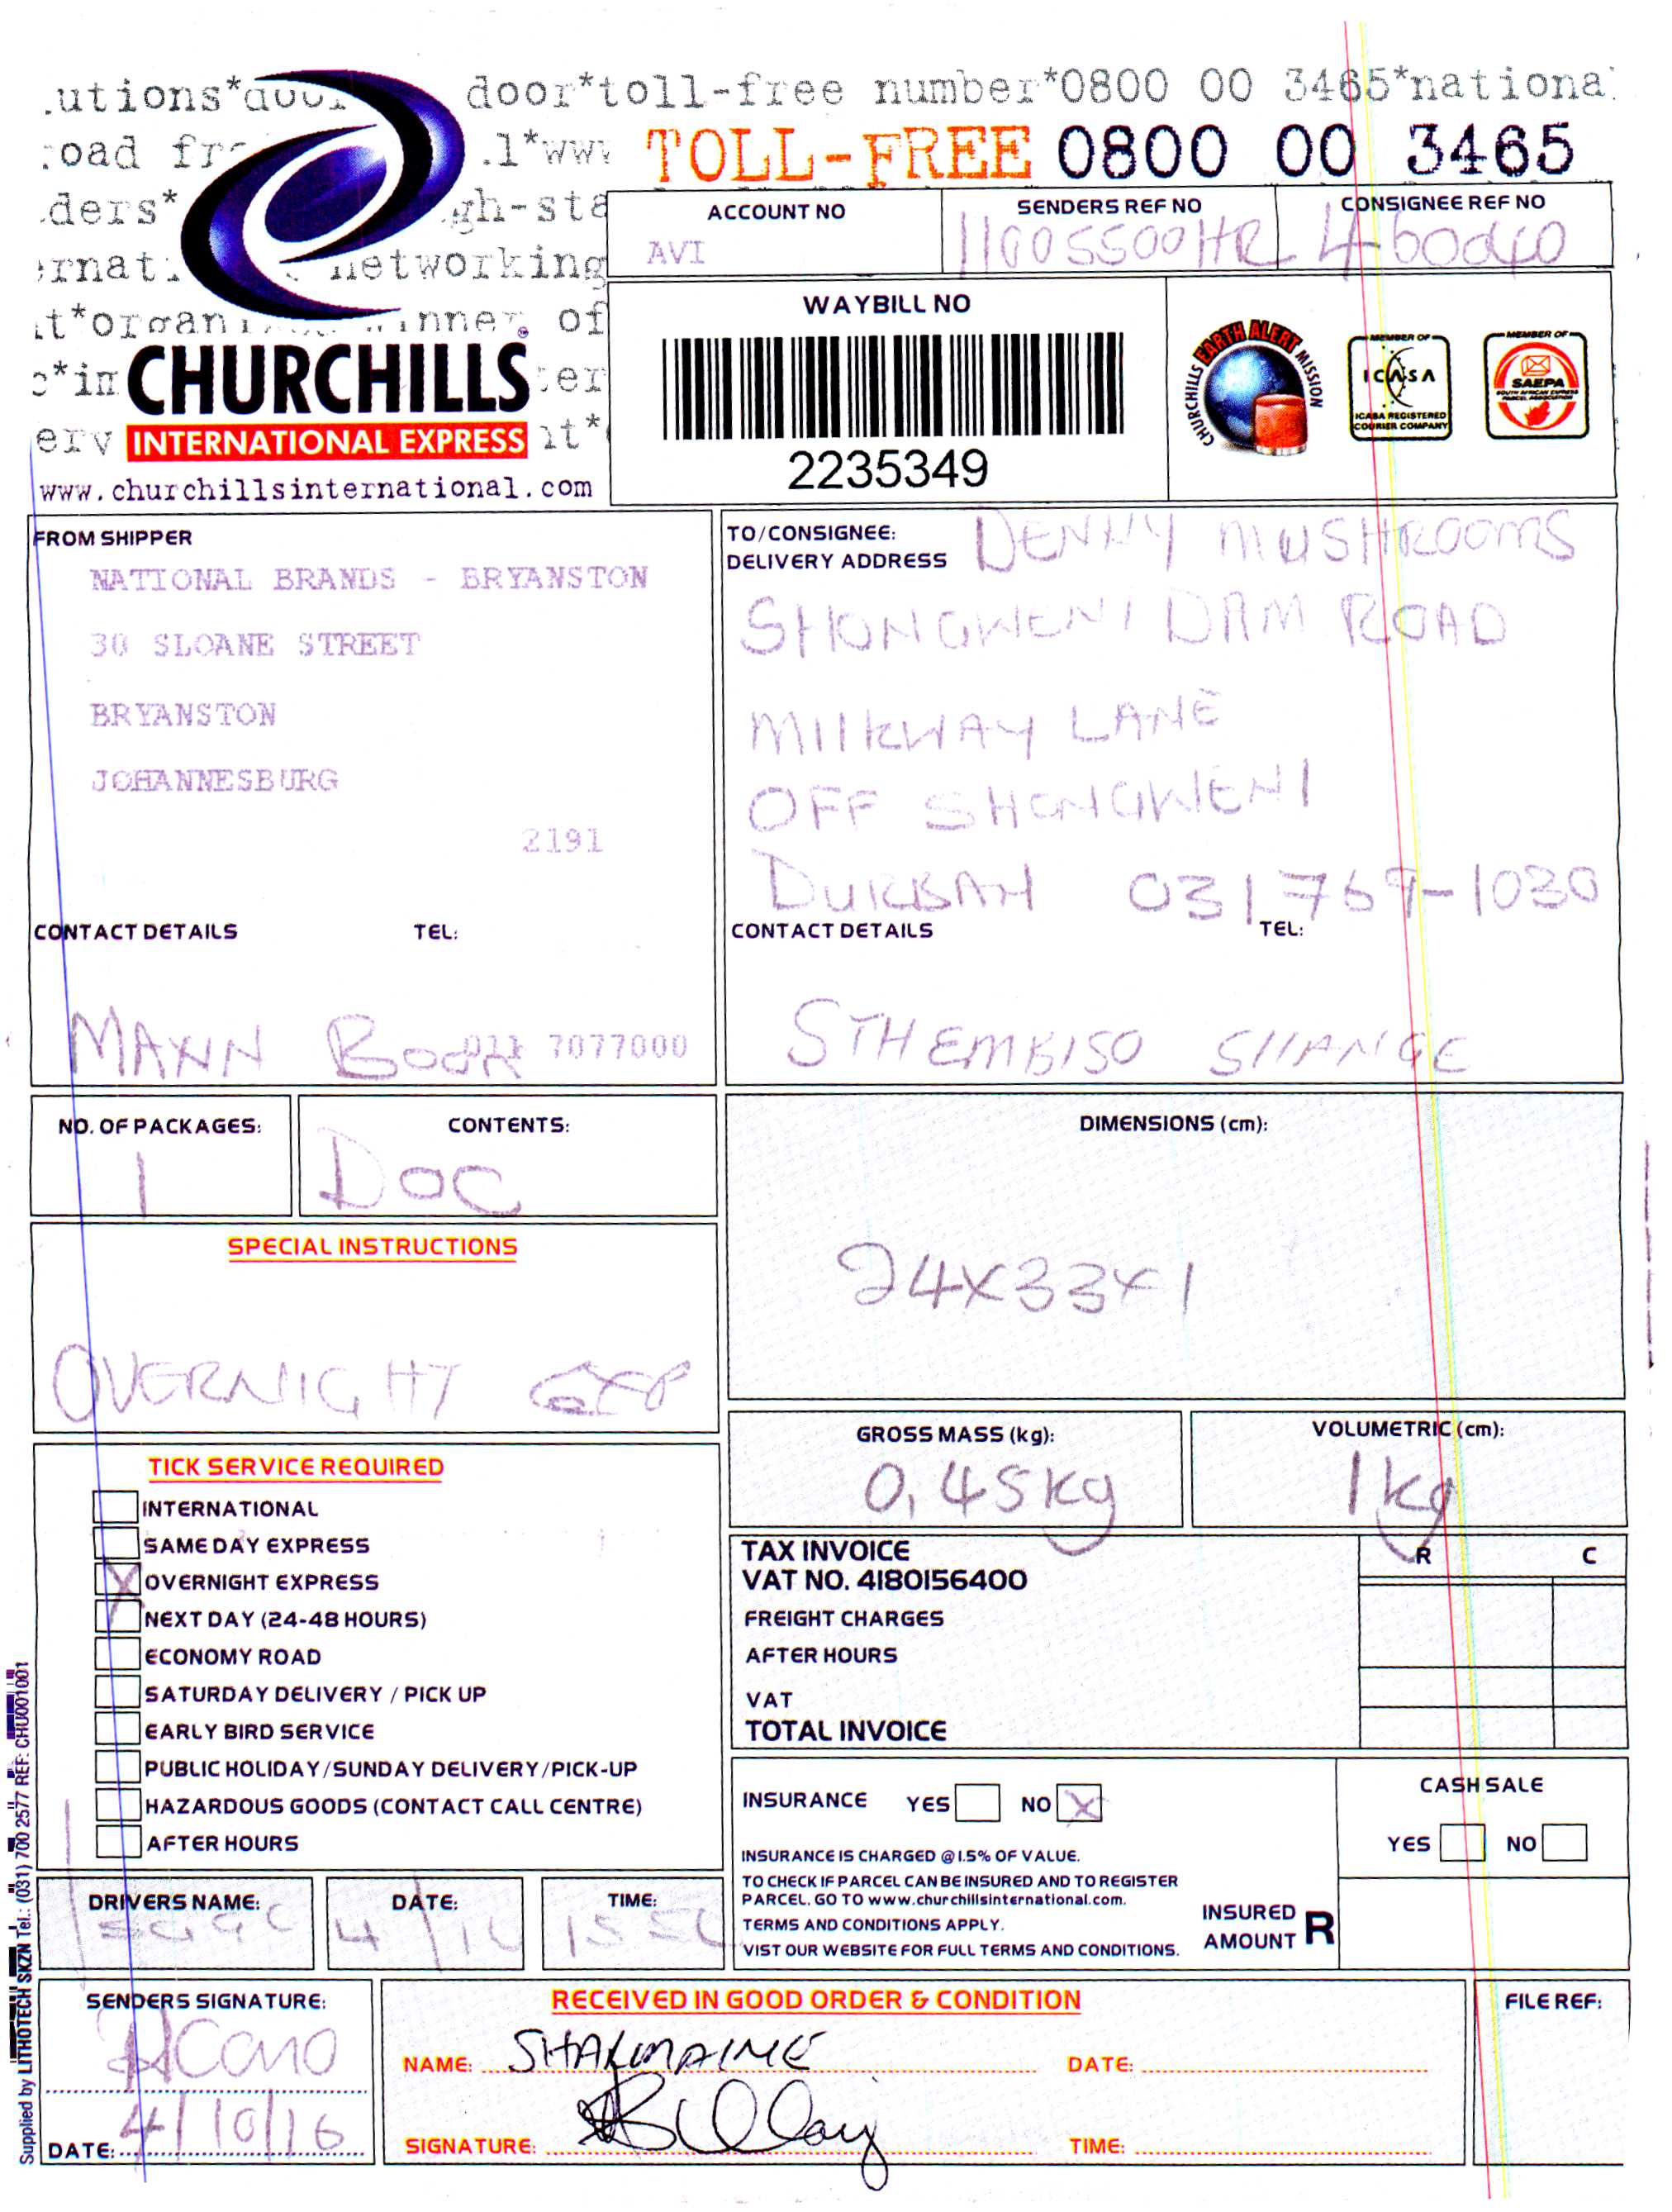 door*toll-free number*0800 00 3465*nationa
TOLL-FREE 0800 00 3465
CHURCHILLS
INTERNATIONAL EXPRESS
www.churchillsinternational.com
ACCOUNT NO
AVI
SENDERS REF NO
11005500HR
CONSIGNEE REF NO
460040
WAYBILL NO
2235349
CHURCHILLS EARTH ALERT MISSION
MEMBER OF
ICASA
ICASA REGISTERED
COURIER COMPANY
MEMBER OF
SAEPA
SOUTH AFRICAN EXPRESS
PARCEL ASSOCIATION
FROM SHIPPER
NATIONAL BRANDS - BRYANSTON
30 SLOANE STREET
BRYANSTON
JOHANNESBURG
2191
CONTACT DETAILS TEL:
011 7077000
TO/CONSIGNEE:
DELIVERY ADDRESS
DENNY MUSHROOMS
SHONGWENI DAM ROAD
MILKWAY LANE
OFF SHONGWENI
DURBAN 031 769-1030
CONTACT DETAILS TEL:
STHEMBISO SHANGE
NO. OF PACKAGES:
1
CONTENTS:
DOC
DIMENSIONS (cm):
24X33X1
SPECIAL INSTRUCTIONS
OVERNIGHT EXP
GROSS MASS (kg):
0,45kg
VOLUMETRIC (cm):
1kg
TICK SERVICE REQUIRED
INTERNATIONAL
SAME DAY EXPRESS
X OVERNIGHT EXPRESS
NEXT DAY (24-48 HOURS)
ECONOMY ROAD
SATURDAY DELIVERY / PICK UP
EARLY BIRD SERVICE
PUBLIC HOLIDAY/SUNDAY DELIVERY/PICK-UP
HAZARDOUS GOODS (CONTACT CALL CENTRE)
AFTER HOURS
TAX INVOICE R C
VAT NO. 4180156400
FREIGHT CHARGES
AFTER HOURS
VAT
TOTAL INVOICE
INSURANCE YES NO X
INSURANCE IS CHARGED @ 1.5% OF VALUE.
TO CHECK IF PARCEL CAN BE INSURED AND TO REGISTER
PARCEL. GO TO www.churchillsinternational.com.
TERMS AND CONDITIONS APPLY.
VIST OUR WEBSITE FOR FULL TERMS AND CONDITIONS.
CASH SALE
YES NO
INSURED
AMOUNT R
DRIVERS NAME:
DATE:
TIME:
SENDERS SIGNATURE:
DATE: 4/10/16
RECEIVED IN GOOD ORDER & CONDITION
NAME: SHARMAINE
DATE:
SIGNATURE:
TIME:
FILE REF:
Supplied by LITHOTECH SKZN Tel.: (031) 700 2577 REF: CHU001001